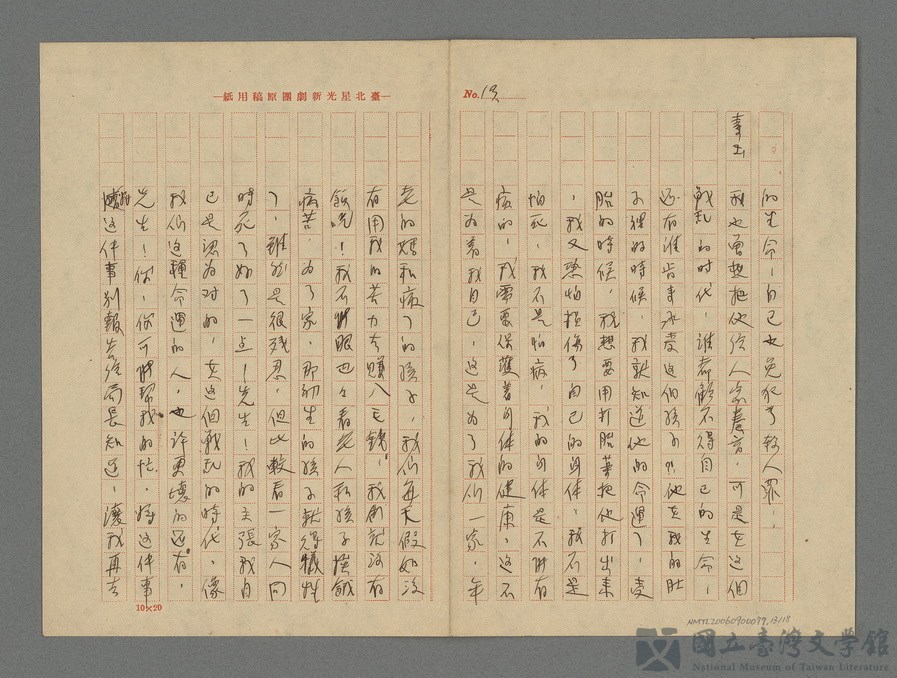 臺北星光新劇團原稿用紙
No. 13
的生命，自已也免犯了殺人罪..
我也曾想把他給人家養育，可是在這個
戰亂的时代，誰都顧不得自己的生命，
还有誰肯来承受这個孩子?!他在我的肚
子裡的時候，我就知道他的命運了，受
胎的時候，我想要用打胎藥把他打出来
，我又恐怕損傷了自己的身体，我不是
怕死，我不是怕病，我的身体是不能有
病的，我需要保護著身体的健康，这不
是为着我自己，这是为了我们一家，年
老的媽和病了的孩子，我们每天假如没
有用我的苦力去賺入毛錢，我們就沒有
飯吃！我不能眼巴々看老人和孩子挨餓
病苦，为了家，那初生的孩子就得犧牲
了，雖然是很残忍，但比較看一家人同
時死了好了一点！先生！我的主張我自
已是認为对的，在这個戰乱的時代，像
我们这種命運的人，也許更壞的还有，
先生！你，你可憐幫我的忙，將这件事
这件事別報告給局長知道，讓我再去
10×20
NMTL20060900099,13/18
國立臺灣文學館
National Museum of Taiwan Literature